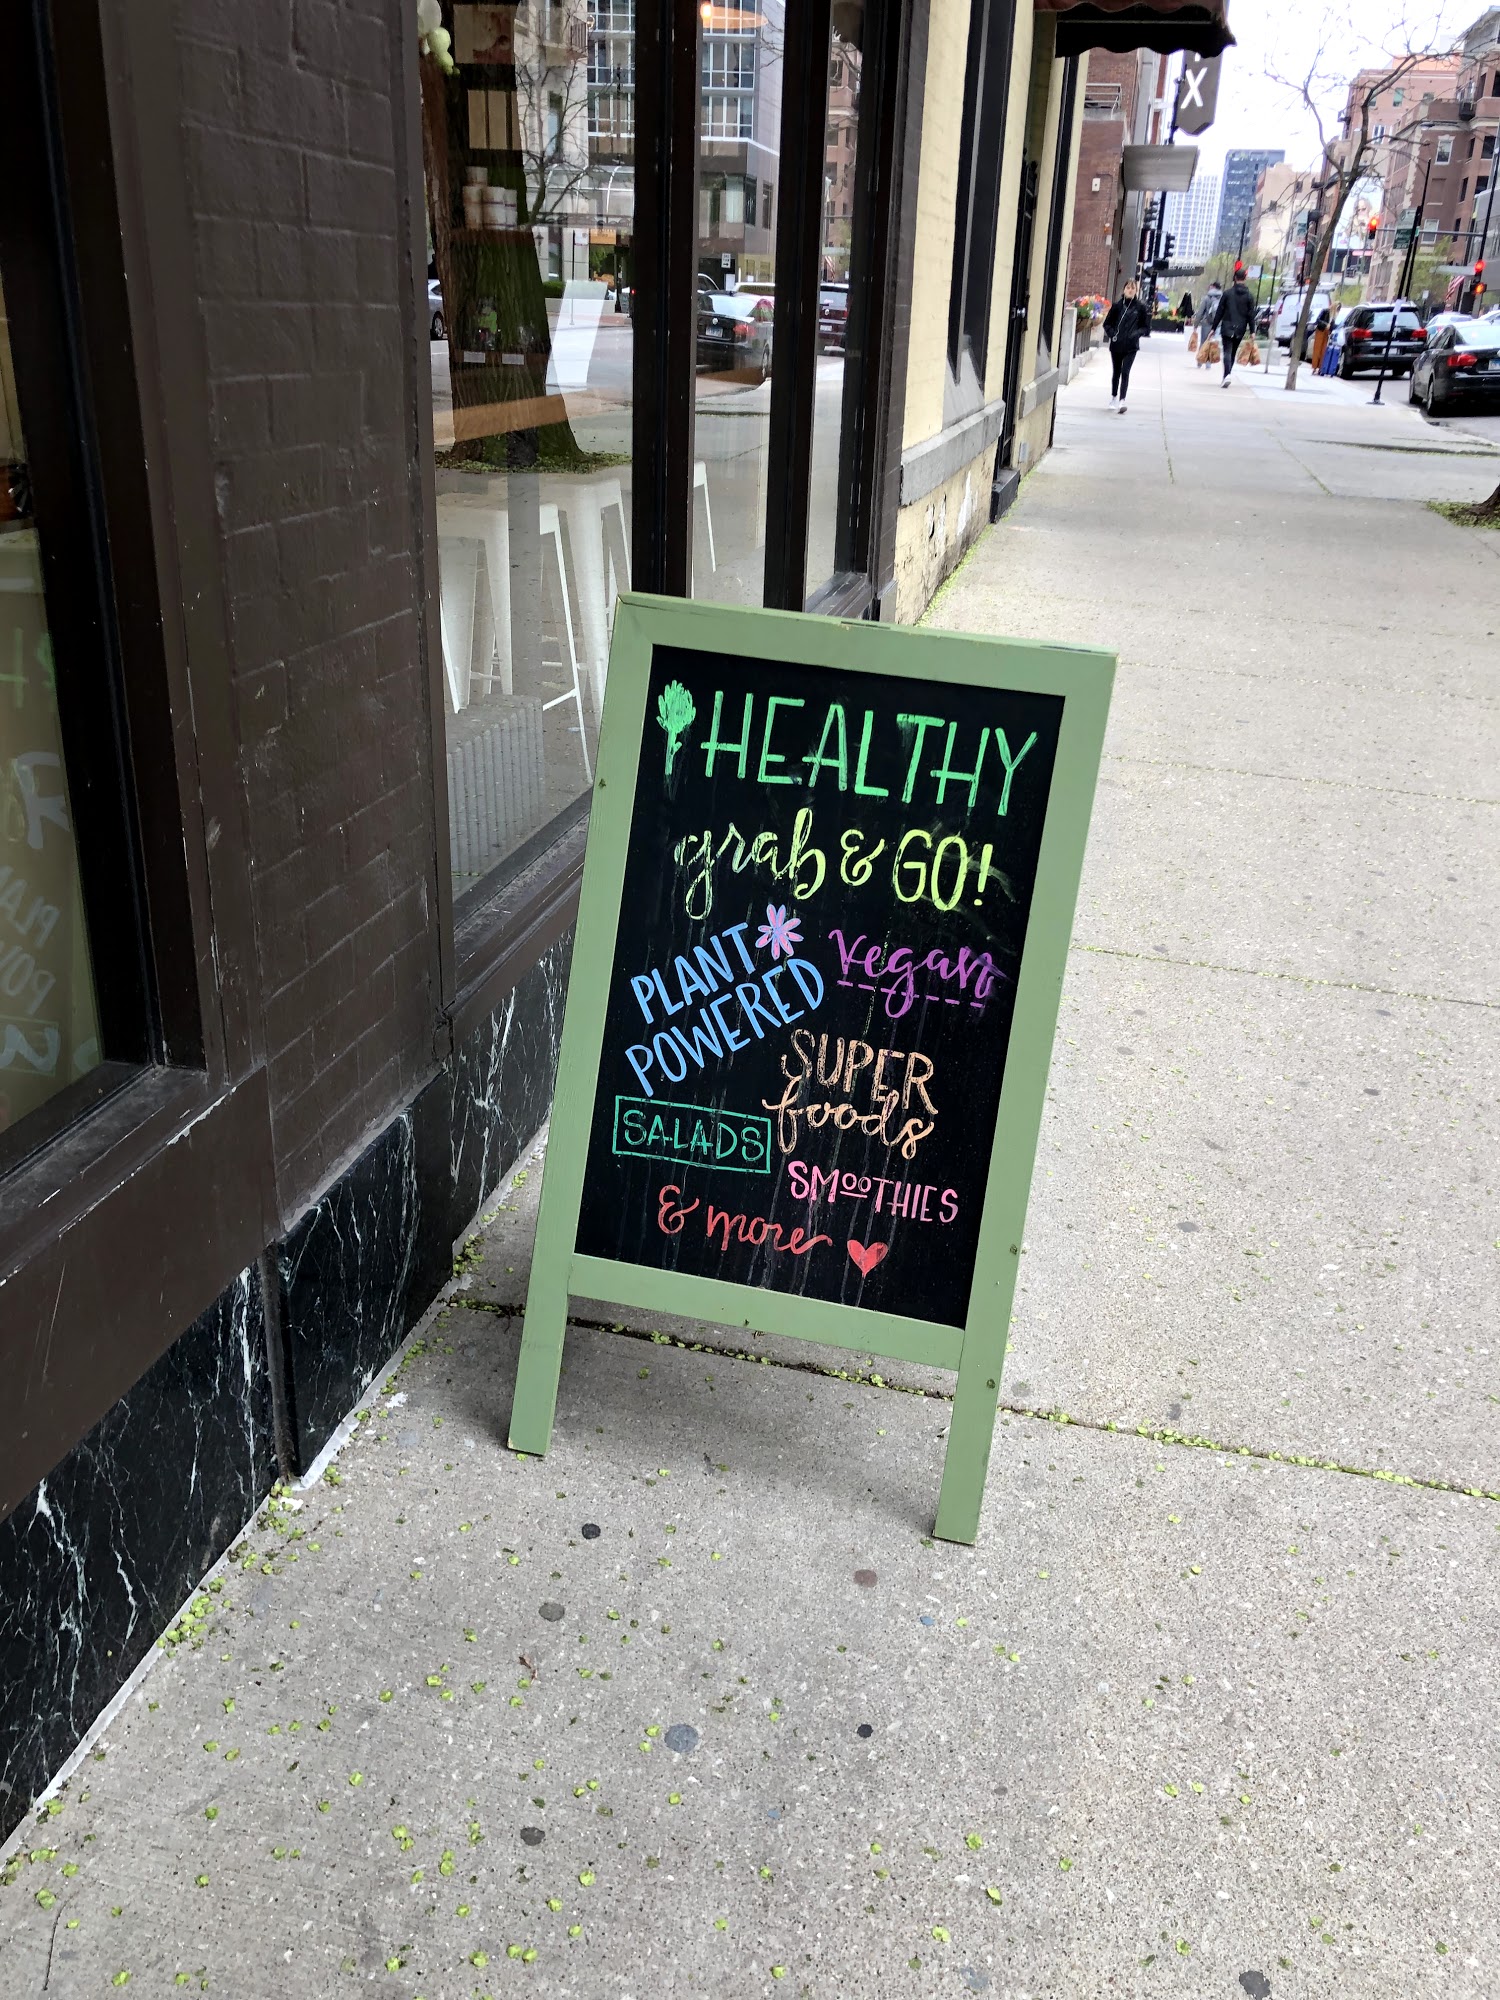 X
HEALTHY
grab & GO!
PLANT
POWERED
vegan
SUPER
foods
SALADS
SMOOTHIES
& more